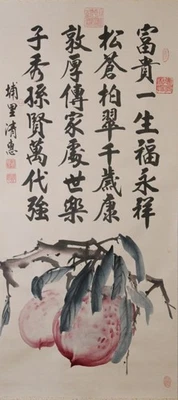 富貴一生福永祥
松蒼柏翠千歲康
敦厚傳家處世樂
子秀孫賢萬代強
埔里清惠